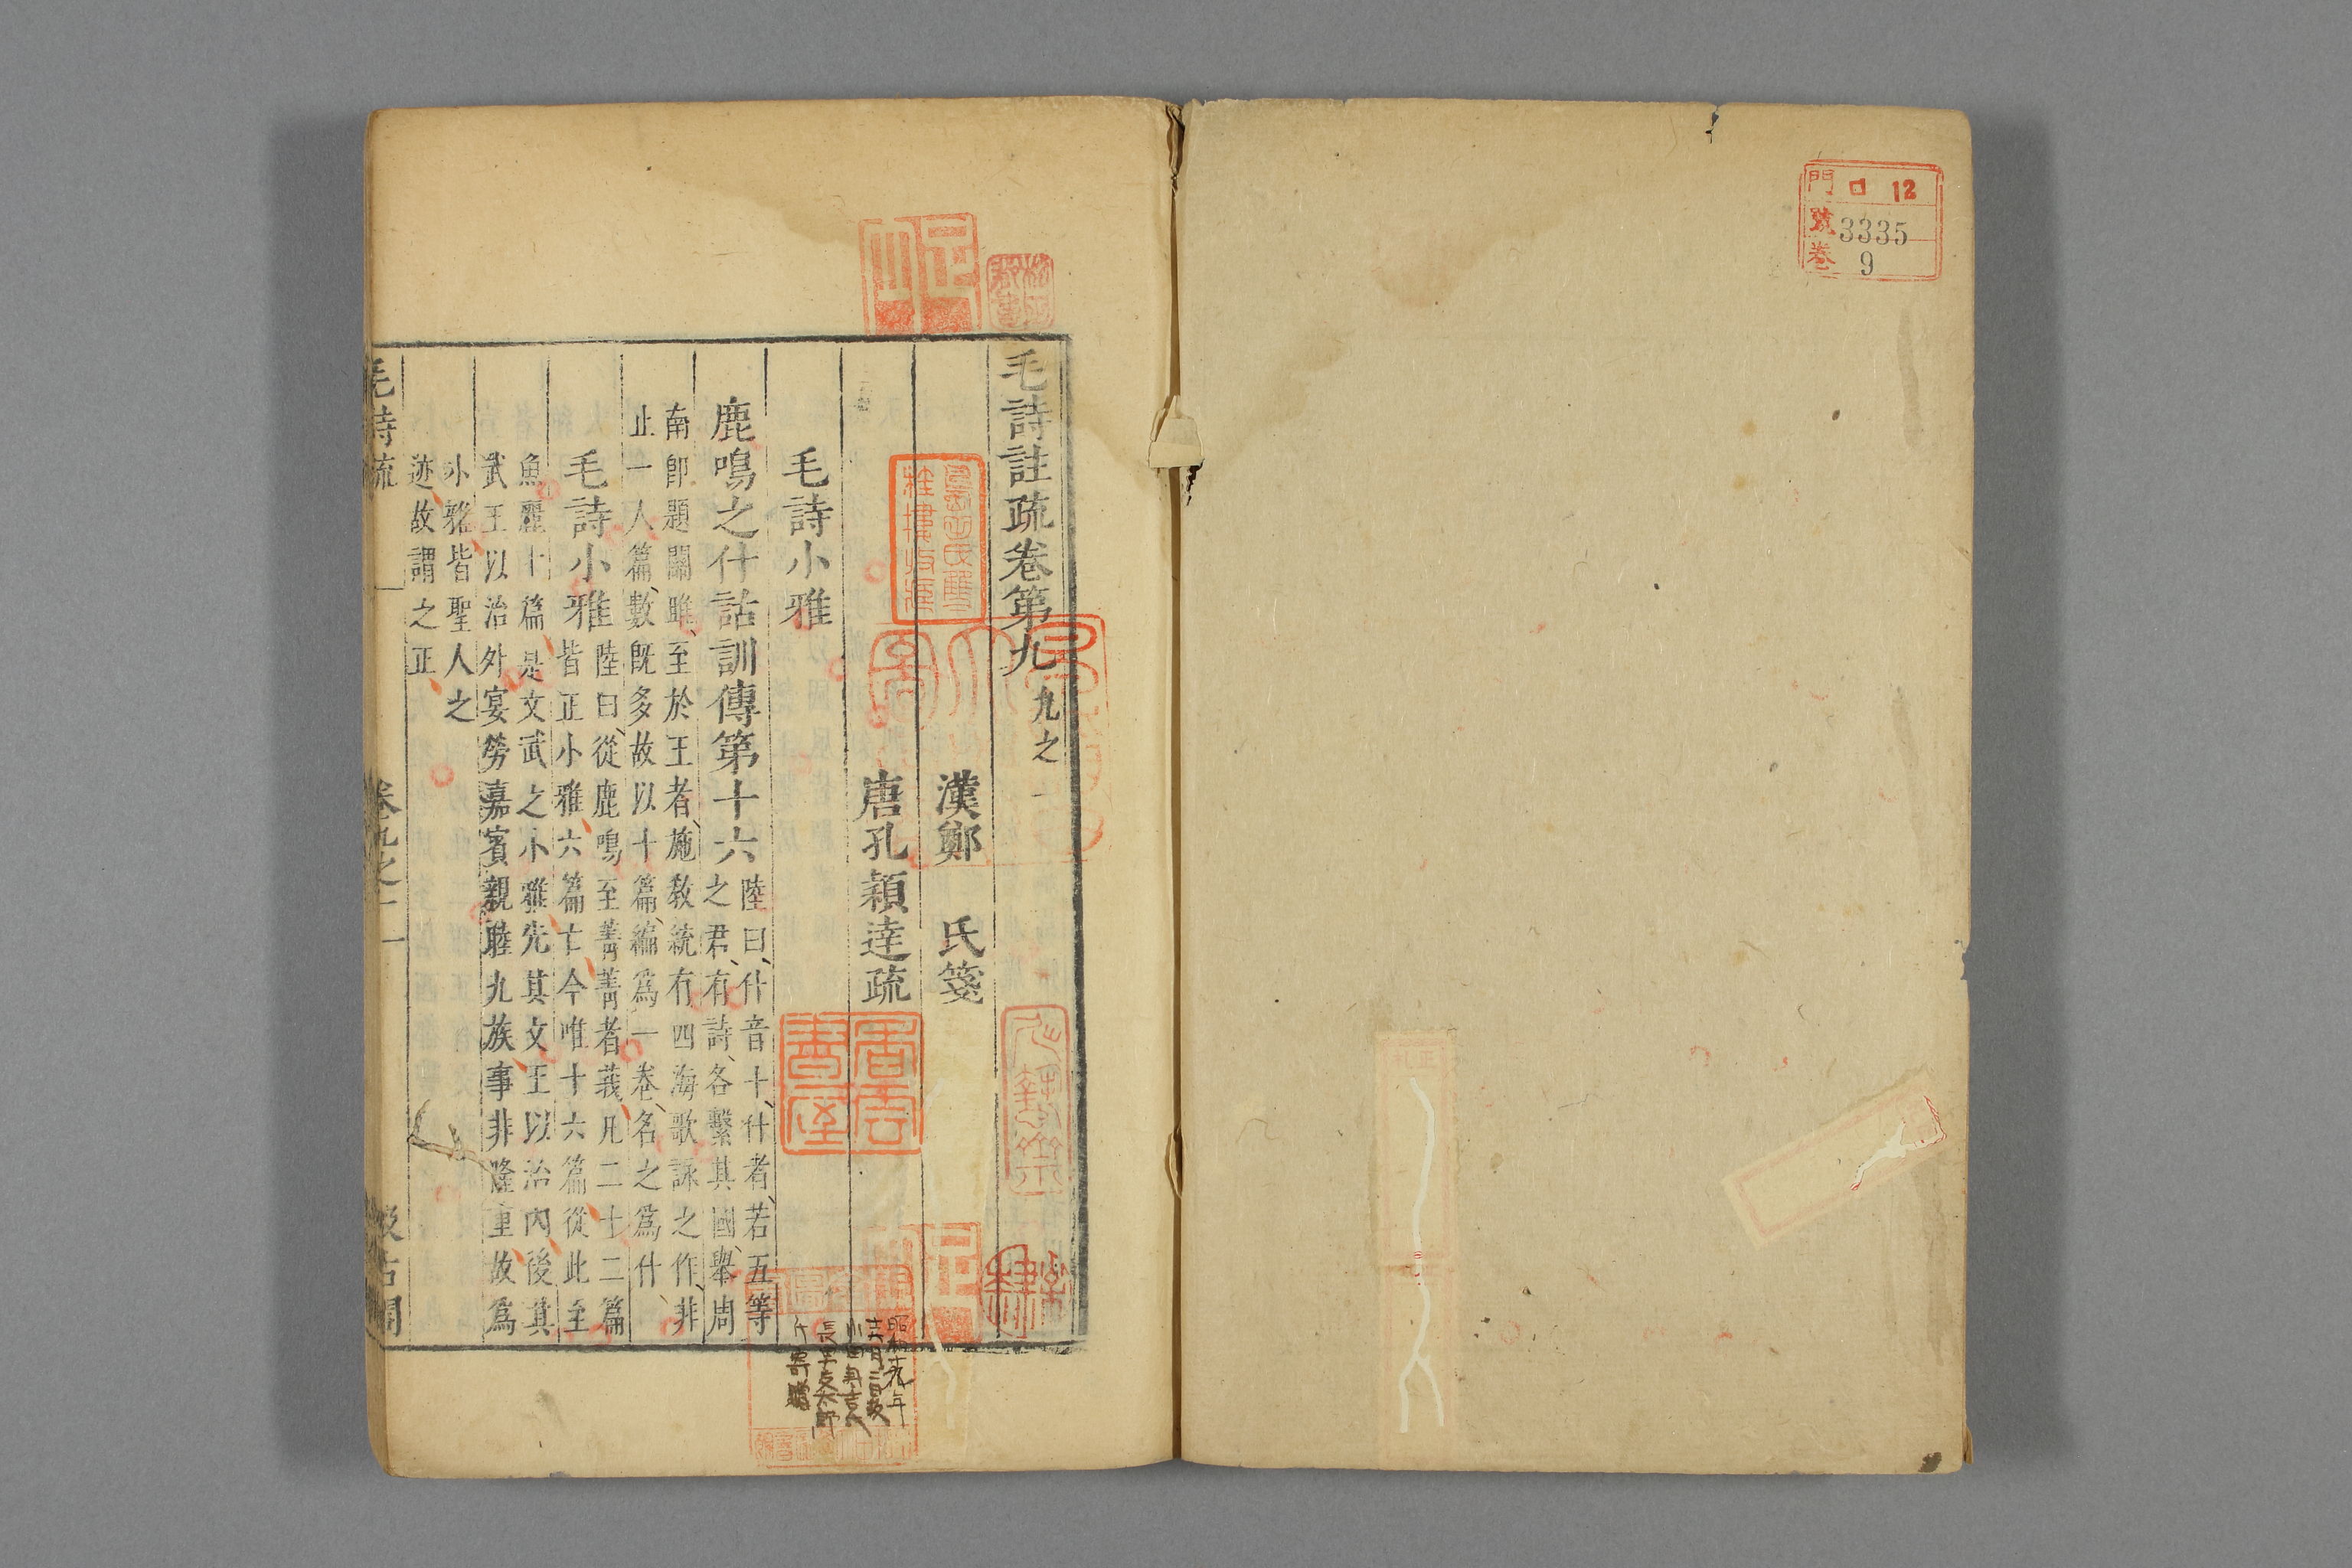 門 ロ 12
號 3335
卷 9
毛詩註疏卷第九 九之一
漢鄭 氏箋
唐孔穎達疏
毛詩小雅
鹿鳴之什詁訓傳第十六 陸曰什音十什者若五等
之君有詩各繫其國舉周
南卽題關雎至於王者施敎統有四海歌詠之作非
止一人篇數旣多故以十篇編爲一卷名之爲什
毛詩小雅 陸曰從鹿鳴至菁菁者莪凡二十二篇
皆正小雅六篇亡今唯十六篇從此至
魚麗十篇是文武之小雅先其文王以治內後其
武王以治外宴勞嘉賓親睦九族事非隆重故爲
小雅皆聖人之
迹故謂之正
毛詩疏 卷九之一 一 汲古閣
昭和十九年
長男友太郎
寄贈